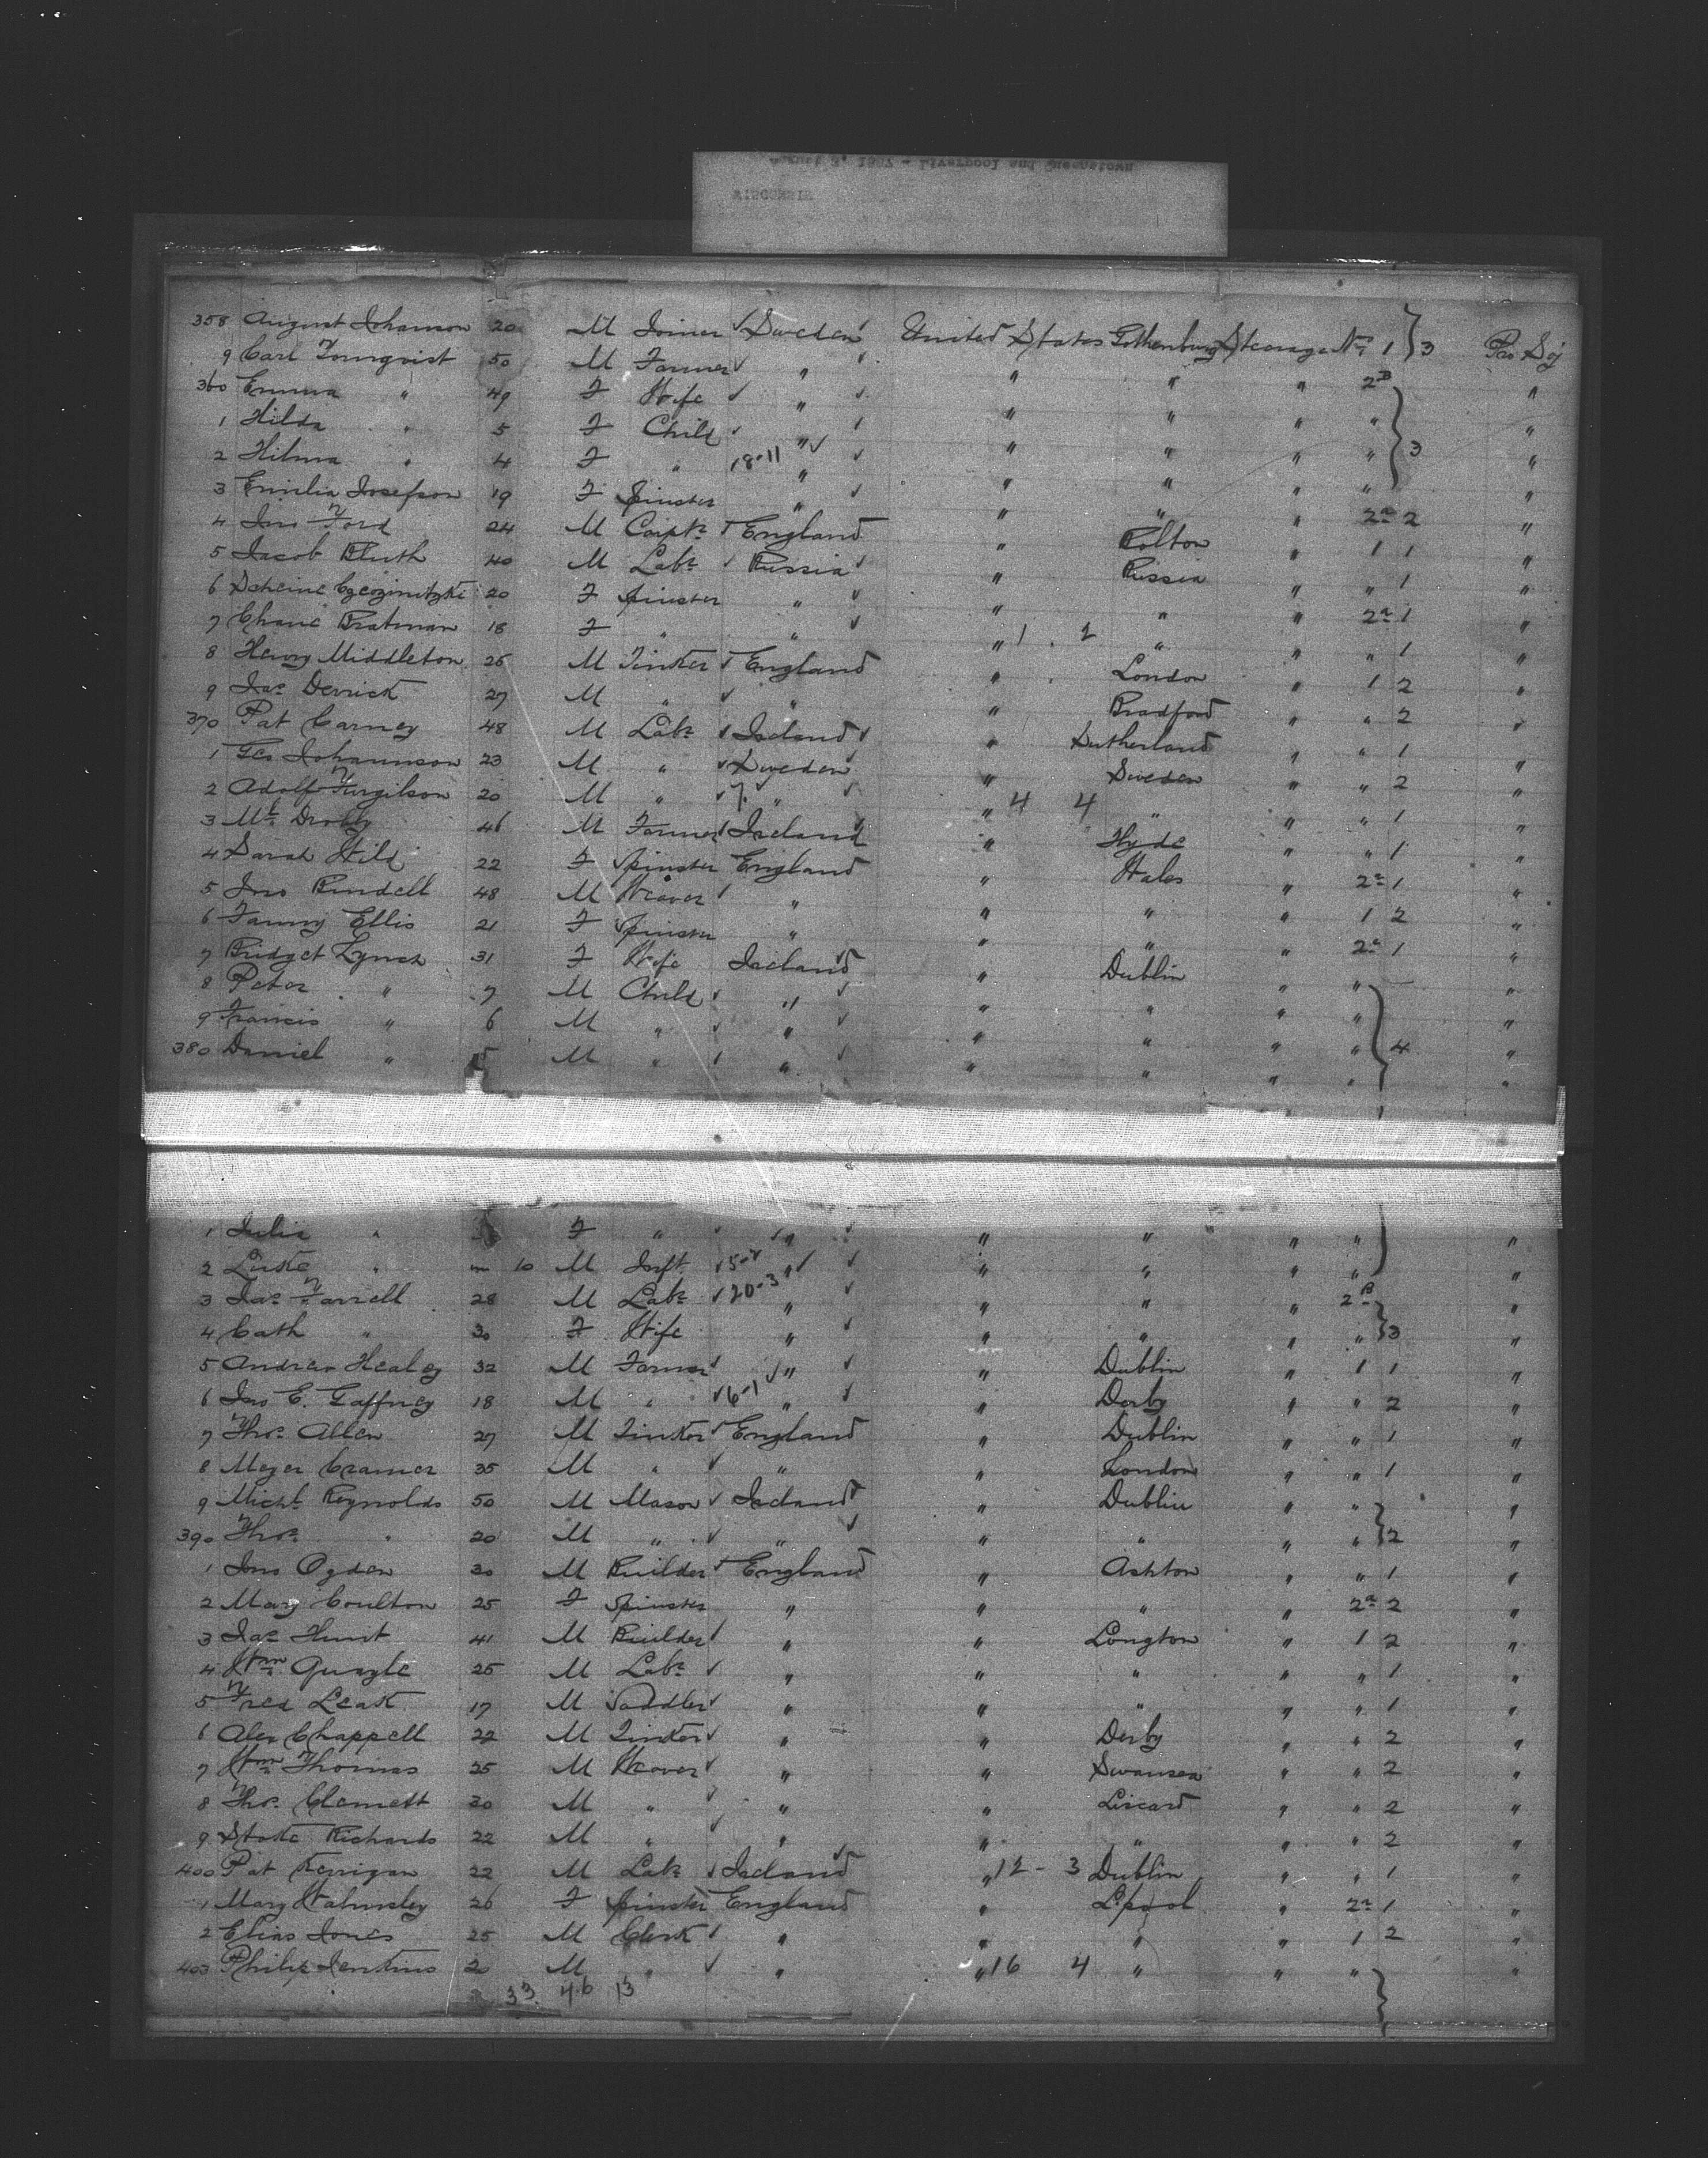 August 3, 1887 - Liverpool and Queenstown
WISCONSIN
358 August Johanson 20 M Joiner Sweden United States Gothenburg Steerage No 1 3 Pro Soj
9 Carl Tornqvist 50 M Farmer " " " " 2B "
360 Emma " 49 F Wife " " " " " "
1 Hilda " 5 F Child " " " " " 3 "
2 Hilma " 4 F " 18-11 " " " " " "
3 Emilia Josefson 19 F Spinster " " " " 2a 2 "
4 Jno Ford 24 M Carptr England " Bolton " 1 1 "
5 Jacob Bluth 40 M Labr Russia " Russia " " 1 "
6 Scheine 20 F Spinster " " " " 2a 1 "
7 Chane Bratman 18 F " " " 1. 2 " " " 1 "
8 Henry Middleton 25 M Tinker England " London " 1 2 "
9 Jas Derrick 27 M " " " Bradford " " 2 "
370 Pat Carney 48 M Labr Ireland " Sutherland " " 1 "
1 Geo Johannson 23 M " Sweden " Sweden " " 2 "
2 Adolf 20 M " 7. " " 4 4 " " " 1 "
3 Mt 46 M Farmer Ireland " Hyde " " 1 "
4 Sarah Wild 22 F Spinster England " Wales " 2a 1 "
5 Jno Rindell 48 M Weaver " " " " 1 2 "
6 Fanny Ellis 21 F Spinster " " " " 2a 1 "
7 Bridget Lynch 31 F Wife Ireland " Dublin " " "
8 Peter " 7 M Child " " " " " "
9 Francis " 6 M " " " " " " 4 "
380 Daniel " 5 M " " " " " " "
1 Julia " F " " " " " " "
2 Luke " 10 M Inft 5-2 " " " " " "
3 Jas Farrell 28 M Labr 20-3 " " " " 2B "
4 Cath " 30 F Wife " " " " " 3 "
5 Andrew Healey 32 M Farmer " " Dublin " 1 1 "
6 Jno C. Gaffney 18 M " 6-1 " " Derby " " 2 "
7 Thos Allen 27 M Tinker England " Dublin " " 1 "
8 Meyer Cramer 35 M " " " London " " 1 "
9 Michl Reynolds 50 M Mason Ireland " Dublin " " "
390 Thos " 20 M " " " " " " 2 "
1 Jno Ogden 30 M Builder England " Ashton " " 1 "
2 Mary Coulton 25 F Spinster " " " " 2a 2 "
3 Jas Hunt 41 M Builder " " Longton " 1 2 "
4 Wm Quayle 25 M Labr " " " " " 1 "
5 Fred Leak 17 M Saddler " " " " " 1 "
6 Alex Chappell 22 M Tinker " " Derby " " 2 "
7 Wm Thomas 25 M Weaver " " Swansea " " 2 "
8 Thos Clemett 30 M " " " Liscard " " 2 "
9 Richards 22 M " " " " " " 2 "
400 Pat Kerrigan 22 M Labr Ireland " 12 - 3 Dublin " " 1 "
1 Mary Walmsley 26 F Spinster England " Lpool " 2a 1 "
2 Elias Jones 25 M Clerk " " " " 1 2 "
403 Philip Jenkins 20 M " " " 16 4 " " " "
33. 46 13